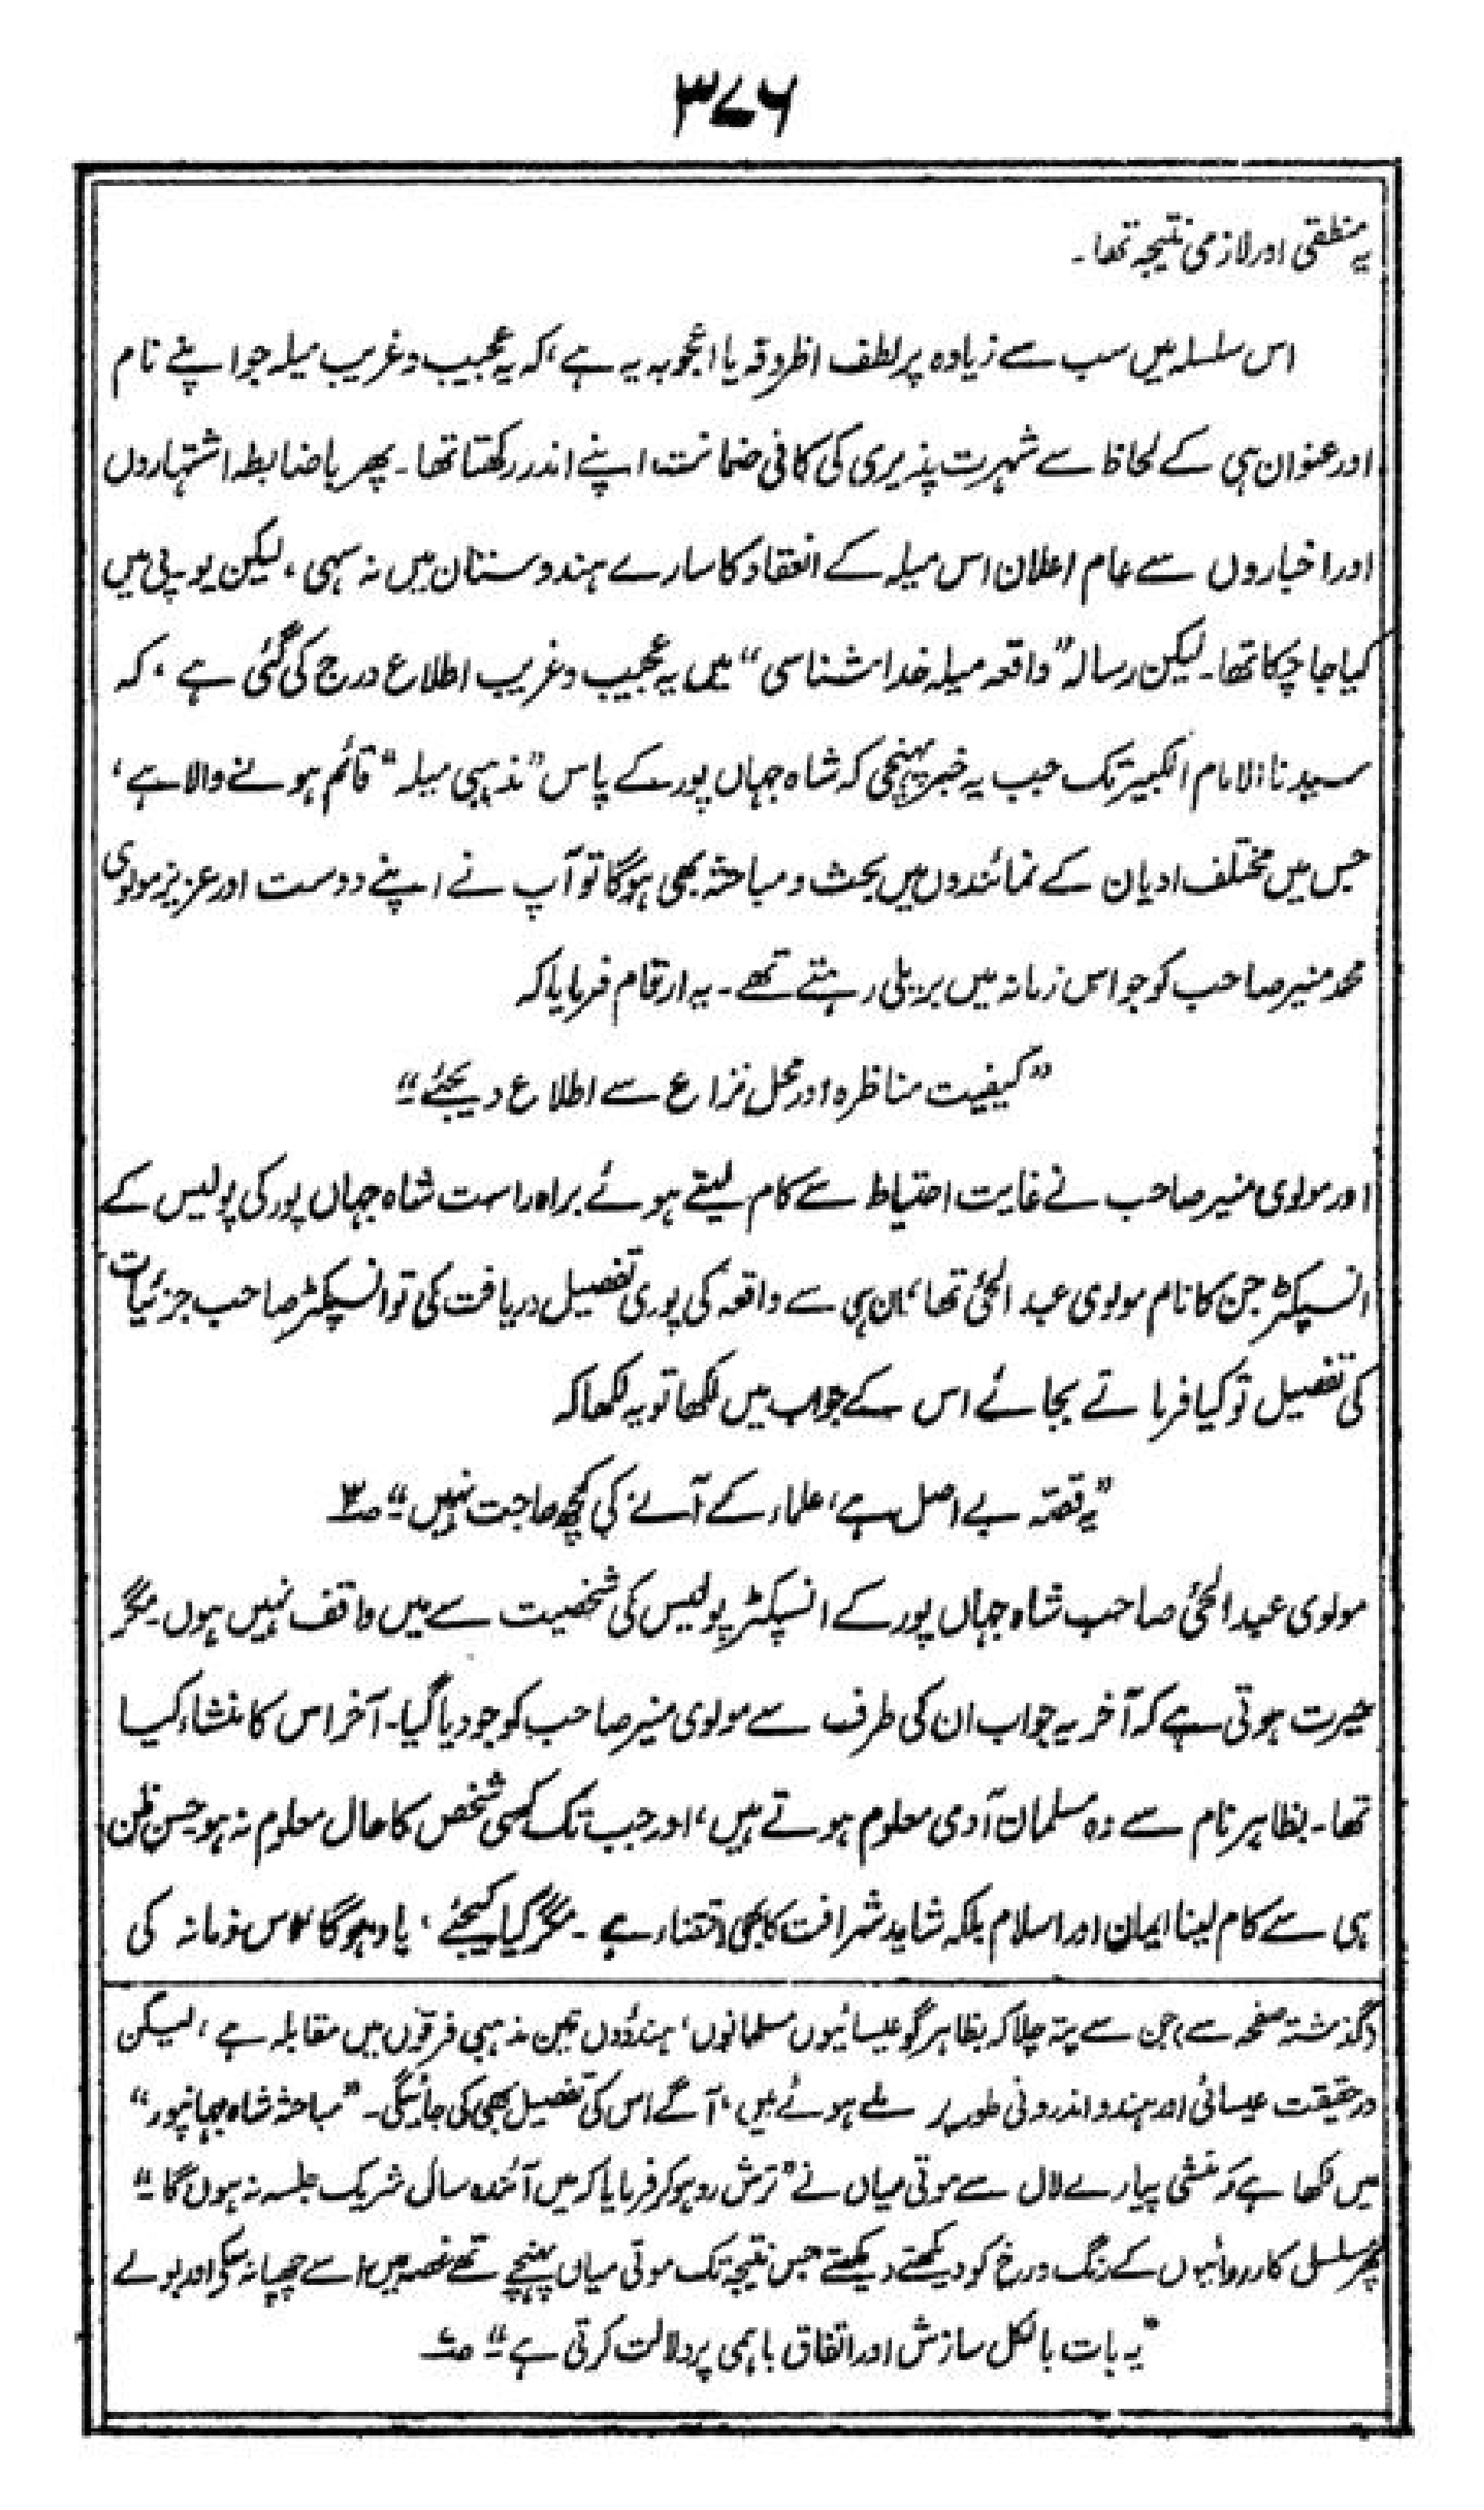 ۳۷۶
یہ منطقی اور لازمی نتیجہ تھا۔
اس سلسلہ میں سب سے زیادہ پر لطف اظروفہ یا اعجوبہ یہ ہے، کہ یہ عجیب و غریب میلہ جو اپنے نام
اور عنوان ہی کے لحاظ سے شہرت پذیری کی کافی ضمانت اپنے اندر رکھتا تھا۔ پھر باضابطہ اشتہاروں
اور اخباروں سے عام اعلان اس میلہ کے انعقاد کا سارے ہندوستان میں نہ سہی، لیکن یو۔پی میں
کیا جا چکا تھا۔ لیکن رسالہ ”واقعہ میلہ خدا شناسی“ میں یہ عجیب و غریب اطلاع درج کی گئی ہے، کہ
سیدنا الامام الکبیر تک جب یہ خبر پہنچی کہ شاہ جہاں پور کے پاس ”مذہبی میلہ“ قائم ہونے والا ہے،
جس میں مختلف ادیان کے نمائندوں میں بحث و مباحثہ بھی ہوگا تو آپ نے اپنے دوست اور عزیز مولوی
محمد منیر صاحب کو جو اس زمانہ میں بریلی رہتے تھے۔ یہ ارقام فرمایا کہ
”کیفیت مناظرہ اور محل نزاع سے اطلاع دیجئے“
اور مولوی منیر صاحب نے غایت احتیاط سے کام لیتے ہوئے براہ راست شاہ جہاں پور کی پولیس کے
انسپکٹر جن کا نام مولوی عبد الحئی تھا، ان ہی سے واقعہ کی پوری تفصیل دریافت کی تو انسپکٹر صاحب جزئیات
کی تفصیل تو کیا فرماتے بجائے اس کے جواب میں لکھا تو یہ لکھا کہ
”یہ قصّہ بے اصل ہے، علماء کے آنے کی کچھ حاجت نہیں“ ص۳
مولوی عبد الحئی صاحب شاہ جہاں پور کے انسپکٹر پولیس کی شخصیت سے میں واقف نہیں ہوں۔ مگر
حیرت ہوتی ہے کہ آخر یہ جواب ان کی طرف سے مولوی منیر صاحب کو جو دیا گیا۔ آخر اس کا منشاء کیا
تھا۔ بظاہر نام سے وہ مسلمان آدمی معلوم ہوتے ہیں، اور جب تک کسی شخص کا حال معلوم نہ ہو حسن ظن
ہی سے کام لینا ایمان اور اسلام بلکہ شاید شرافت کا بھی اقتضاء ہے۔ مگر کیا کیجئے، یاد ہوگا اس زمانہ کی
(گذشتہ صفحہ سے) جن سے پتہ چلا کہ بظاہر گو عیسائیوں مسلمانوں، ہندوؤں تین مذہبی فرقوں میں مقابلہ ہے، لیکن
درحقیقت عیسائی اور ہندو اندرونی طور پر ملے ہوئے ہیں، آگے اس کی تفصیل بھی کی جائیگی۔ ”مباحثہ شاہجہانپور“
میں لکھا ہے کہ منشی پیارے لال سے موتی میاں نے ”ترش رو ہوکر فرمایا کہ میں آئندہ سال شریک جلسہ نہ ہوں گا“
پھر مسلسل کارروائیوں کے رنگ و رخ کو دیکھتے دیکھتے جس نتیجہ تک موتی میاں پہنچے تھے غصہ میں اسے چھپا نہ سکے اور بولے
”یہ بات بالکل سازش اور اتفاق باہمی پر دلالت کرتی ہے“